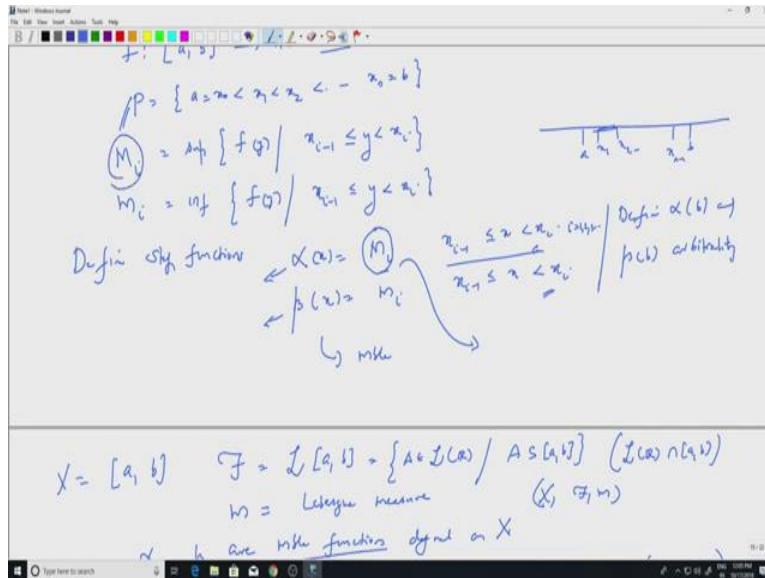 Note1 - Windows Journal
File Edit View Insert Actions Tools Help
f : [a, b]
P = { a = x₀ < x₁ < x₂ < . - xₙ = b }
Mᵢ = sup { f(y) / xᵢ₋₁ ≤ y < xᵢ }
mᵢ = inf { f(y) / xᵢ₋₁ ≤ y < xᵢ }
a x₁ xₙ₋₁ b
Define step functions α(x) = Mᵢ xᵢ₋₁ ≤ x < xᵢ
β(x) = mᵢ xᵢ₋₁ ≤ x < xᵢ
Define α(b) and
β(b) arbitrarily
↳ mble
X = [a, b] F = L[a, b] = { A ∈ L(R) / A ⊆ [a, b] } (L(R) ∩ [a, b])
m = Lebesgue measure (X, F, m)
are mble functions defined on X
Type here to search
12:05 PM
10/17/2018